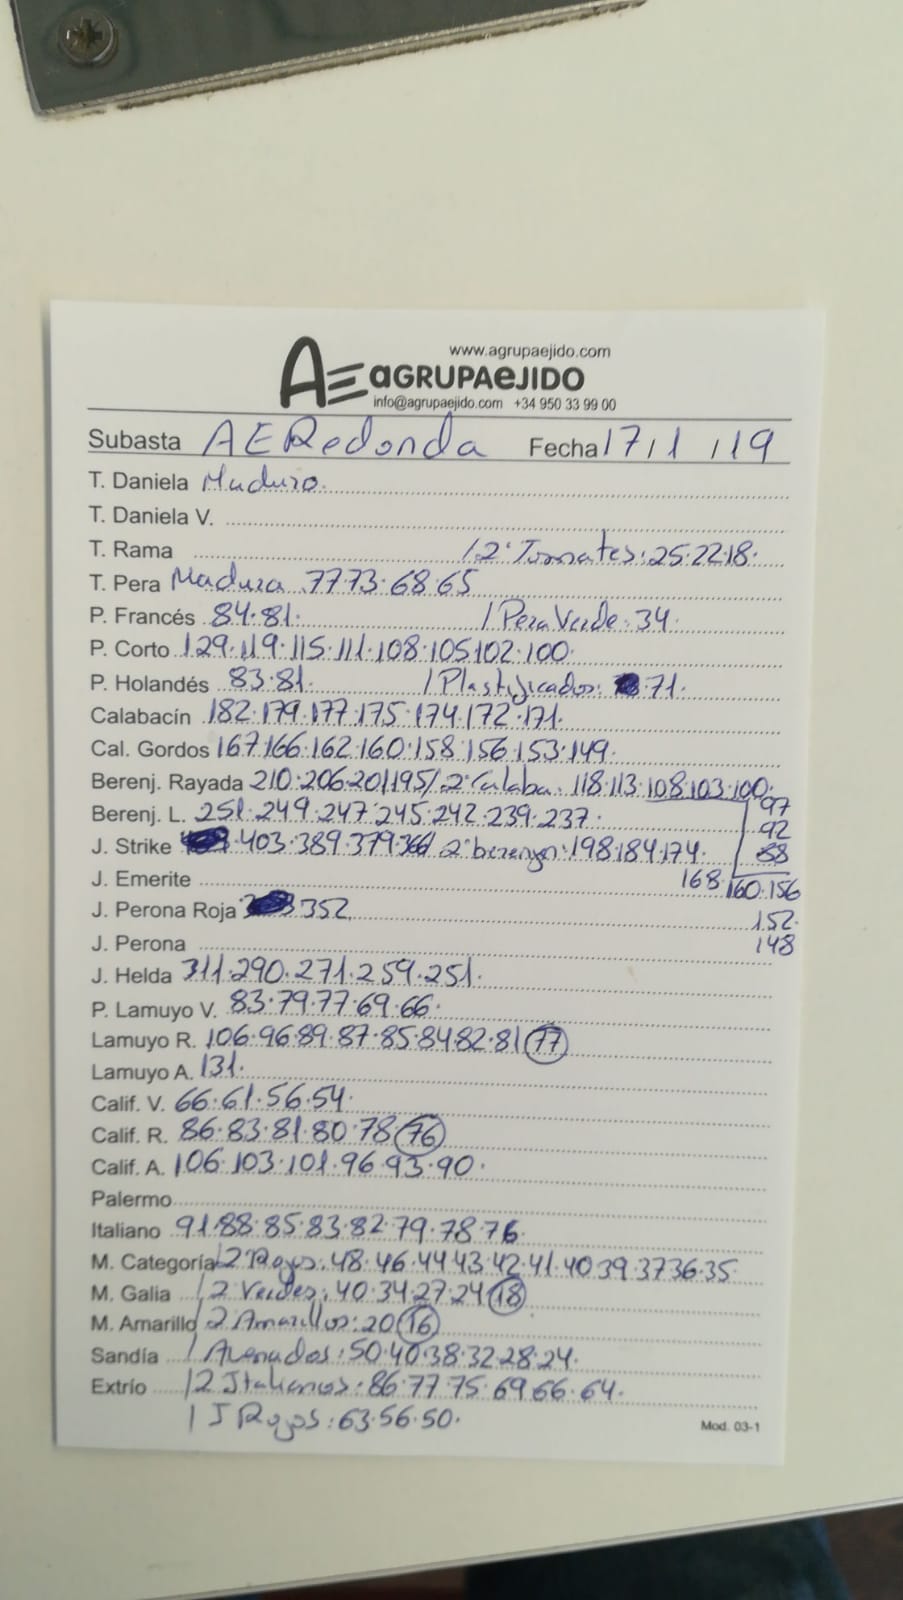 www.agrupaejido.com
AE aGRUPAeJIDO
info@agrupaejido.com +34 950 33 99 00
Subasta AERedonda Fecha 17/1/19
T. Daniela Maduro.
T. Daniela V.
T. Rama /2ª Tomates: 25.22.18.
T. Pera Madura 77.73.68.65
P. Francés 84.81. /Pera Verde: 34.
P. Corto 129.119.115.111.108.105.102.100.
P. Holandés 83.81. /Plastificados: 71.
Calabacín 182.179.177.175.174.172.171.
Cal. Gordos 167.166.162.160.158.156.153.149.
Berenj. Rayada 210.206.201.195/2ª Calaba: 118.113.108.103.100.
97
Berenj. L. 251.249.247.245.242.239.237.
92
J. Strike 403.389.379.366 2ª berenjen: 198.184.174. 88
J. Emerite 168.160.156
J. Perona Roja 352 152.
J. Perona 148
J. Helda 311.290.271.259.251.
P. Lamuyo V. 83.79.77.69.66.
Lamuyo R. 106.96.89.87.85.84.82.81 77
Lamuyo A. 131.
Calif. V. 66.61.56.54.
Calif. R. 86.83.81.80.78 76
Calif. A. 106.103.101.96.93.90.
Palermo
Italiano 91.88.85.83.82.79.78.76.
M. Categoría /2 Rojos: 48.46.44.43.42.41.40.39.37.36.35.
M. Galia /2 Verdes: 40.34.27.24 18
M. Amarillo /2 Amarillos: 20 16
Sandía /Asenados: 50.40.38.32.28.24.
Extrío /2 Italianos: 86.77.75.69.66.64.
/J Rojos: 63.56.50.
Mod. 03-1